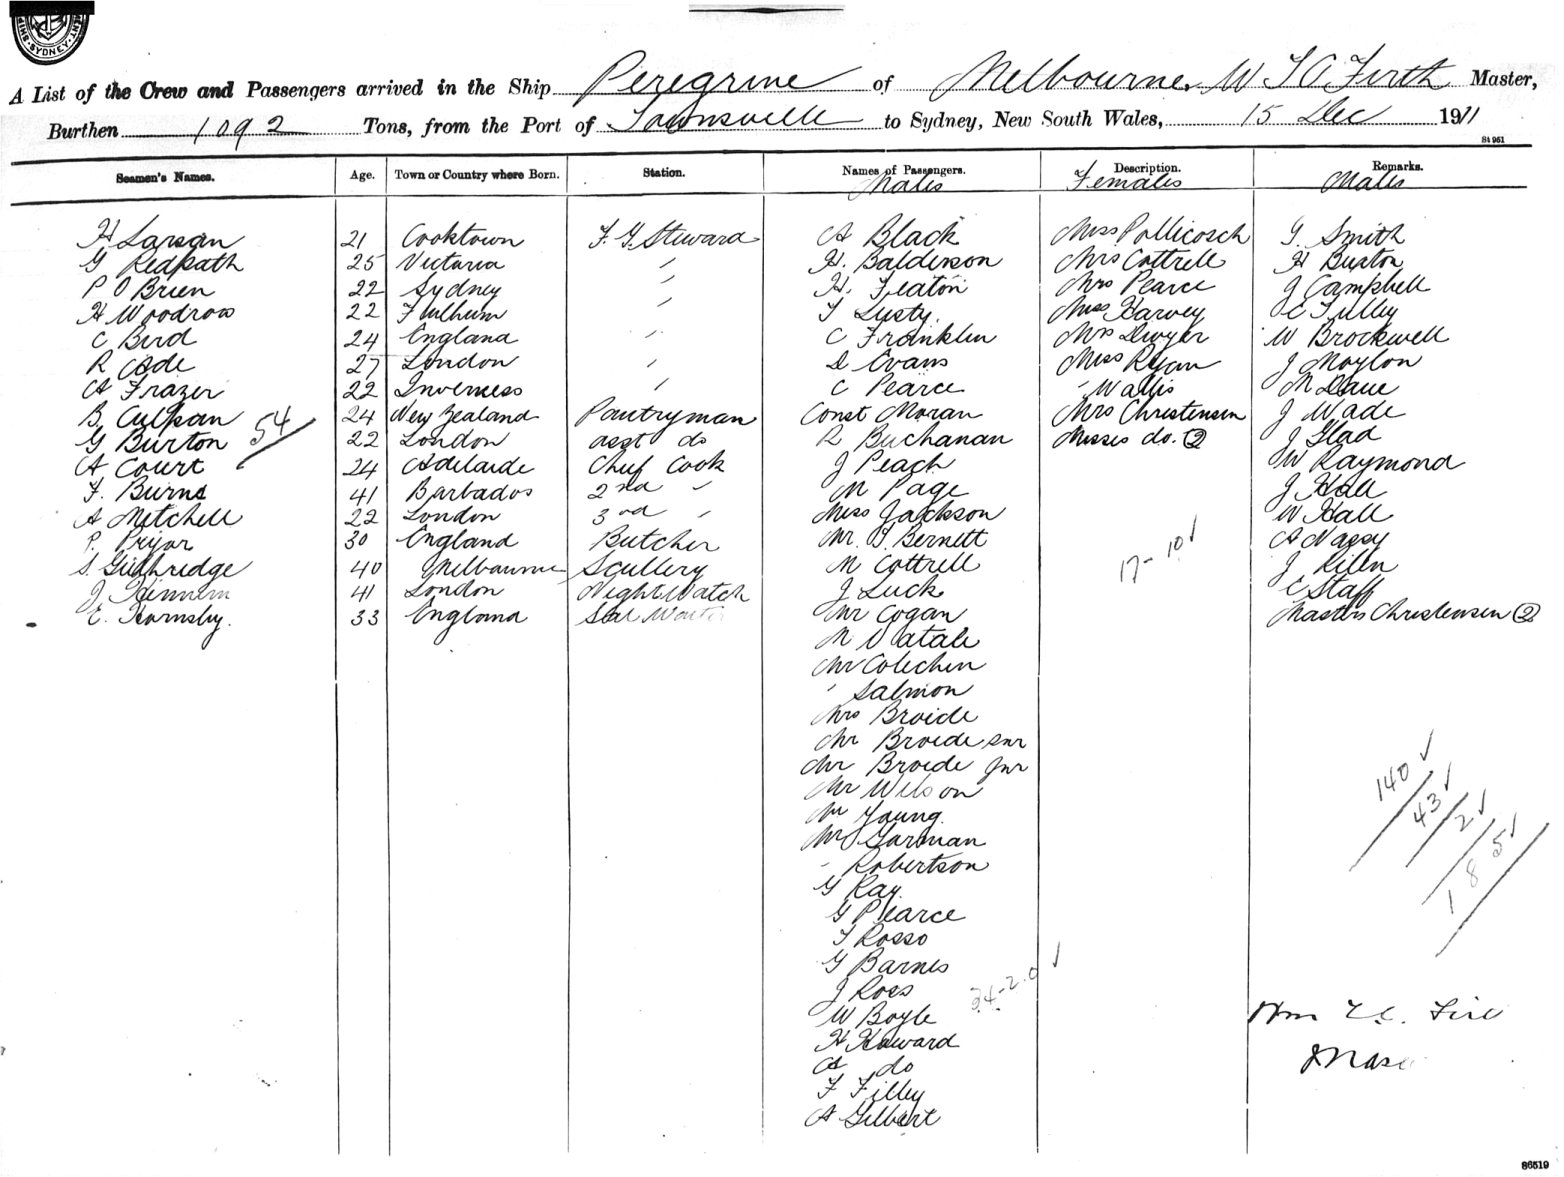 SYDNEY
A List of the Crew and Passengers arrived in the Ship Peregrine of Melbourne, W T C Firth Master,
Burthen 1092 Tons, from the Port of Townsville to Sydney, New South Wales, 15 Dec 1911
St 951
Seamen's Names. Age. Town or Country where Born. Station. Names of Passengers. Description. Remarks.
Males Females Males
H Larsen 21 Cooktown F. G. Steward
G Redpath 25 Victoria "
P O'Brien 22 Sydney "
H Woodrow 22 Fulhum "
C Bird 24 England "
R Ade 27 London "
A Frazer 22 Inverness "
B. Culpan 24 New Zealand Pantryman
G Burton 22 London asst do
54
A Court 24 Adelaide Chief Cook
F. Burns 41 Barbados 2nd "
A Mitchell 22 London 3rd "
P. Pryor 30 England Butcher
S. Guthridge 40 Melbourne Scullery
J 41 London Nightwatch
E. Hornsby. 33 England
A Black
H. Balderson
H. Featon
T Lusty
C Franklin
D Evans
C Pearce
Const Moran
R Buchanan
J Peach
M Page
Miss Jackson
Mr. T. Bernett
M Cottrell
J Luck
Mr Cogan
M Natale
Mr Colechin
" Salmon
Mrs Broide
Mr Broide snr
Mr Broide Jnr
Mr Wilson
Mr Young
Mr Garman
" Robertson
G Ray
G Pearce
T Rosso
G Barnes
J Ross
W Boyle
H Howard
A do
F Filley
A Gilbert
34-2.0 ✓
Miss Pollicosch
Mrs Cottrell
Mrs Pearce
Miss Harvey
Mrs Dwyer
Miss Ryan
" Wallis
Mrs Christensen
Misses do. 2
17-10 ✓
G. Smith
H Buxton
J Campbell
C Tulley
W Brockwell
J Moylon
M Daue
J Wade
J Glad
W Raymond
J Hall
W Hall
A Nassy
J Rilen
C Staff
Masters Christensen 2
140 ✓
43 ✓
2 ✓
185 ✓
Wm T. C.
86519